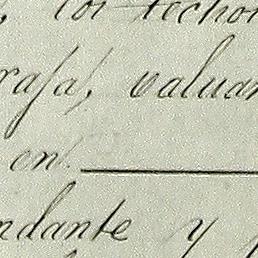 los techos
rasa, valuan
en
ndante y